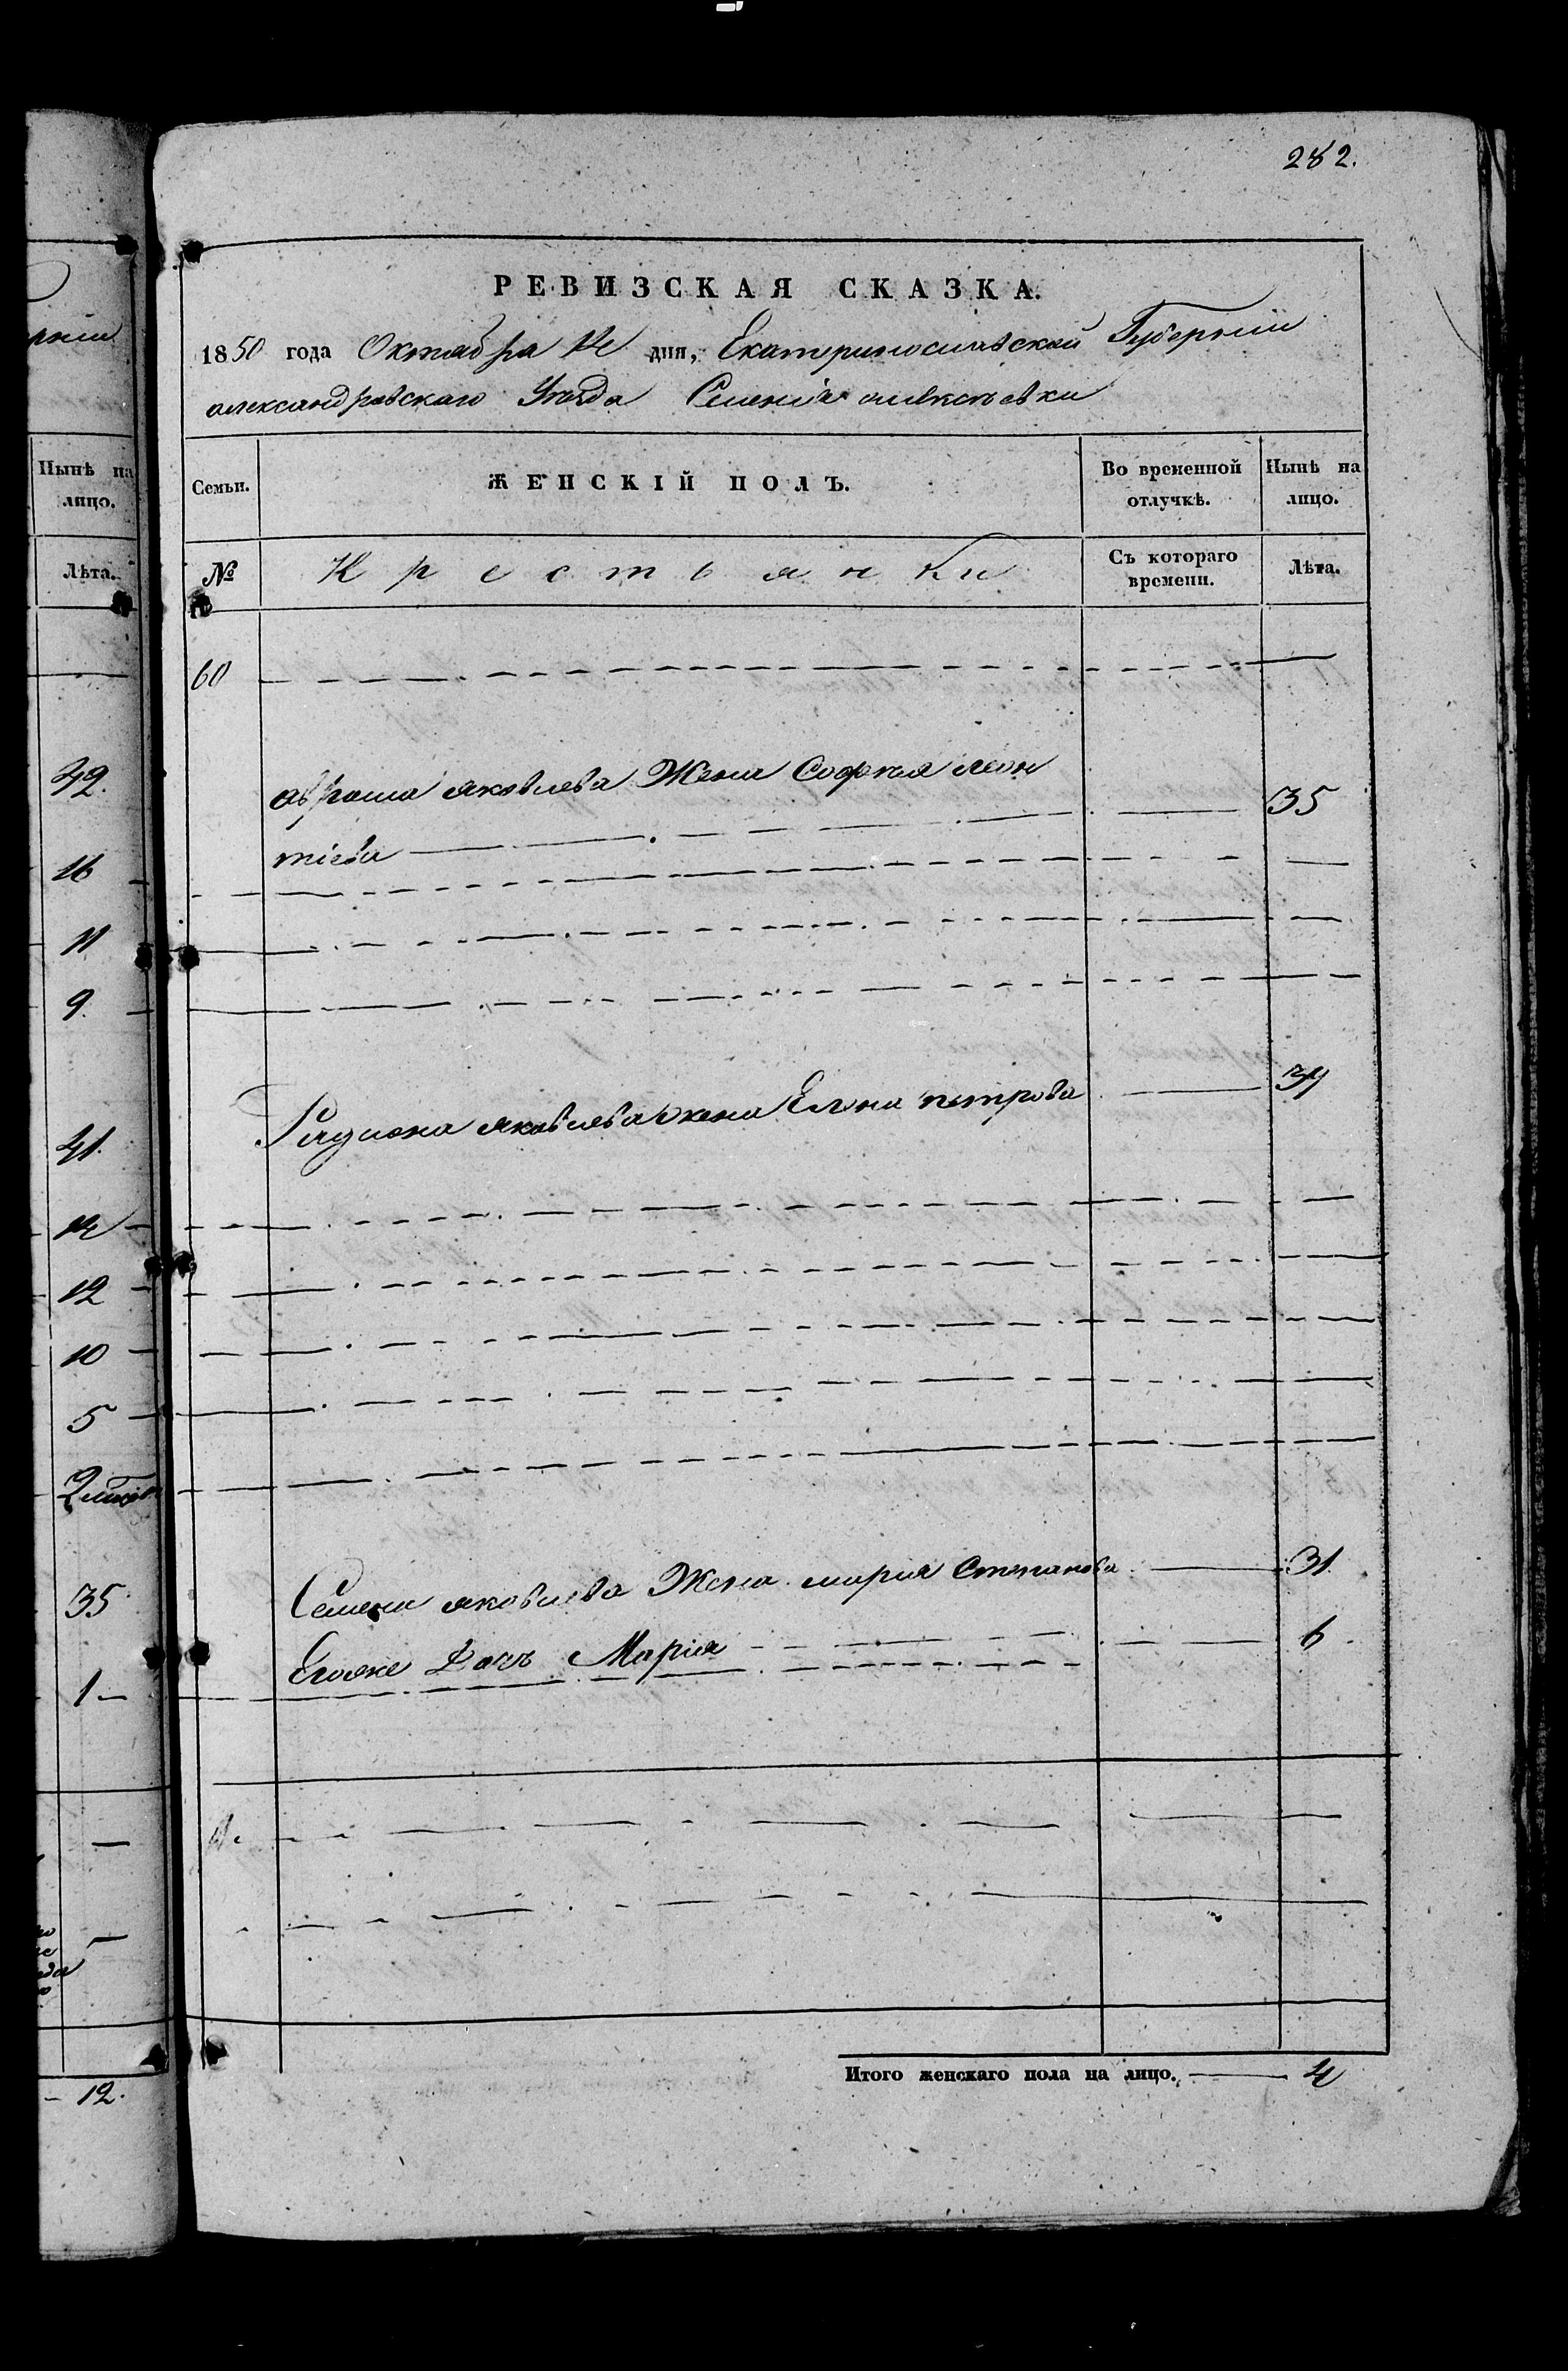 282.
рніи
Нынѣ на
лицо.
Лѣта.
42.
16
11
9.
41.
14
12
10
5
35
1
12.
РЕВИЗСКАЯ СКАЗКА.
1850 года Октября дня, Екатеринославской Губерніи
александровскаго Уезда Селенія алексѣевки
Семьи.
ЖЕНСКІЙ ПОЛЪ.
Во временной отлучкѣ.
Нынѣ на лицо.
№
Крестьянки
Съ котораго времени.
Лѣта.
60
аврама яковлева Жена Софья леон
тіева 35
Радиона яковлева жена Елена петрова 34
Семена яковлева Жена мария Степанова 31.
Егоже Дочь Марія 6.
Итого женскаго пола на лицо. 4